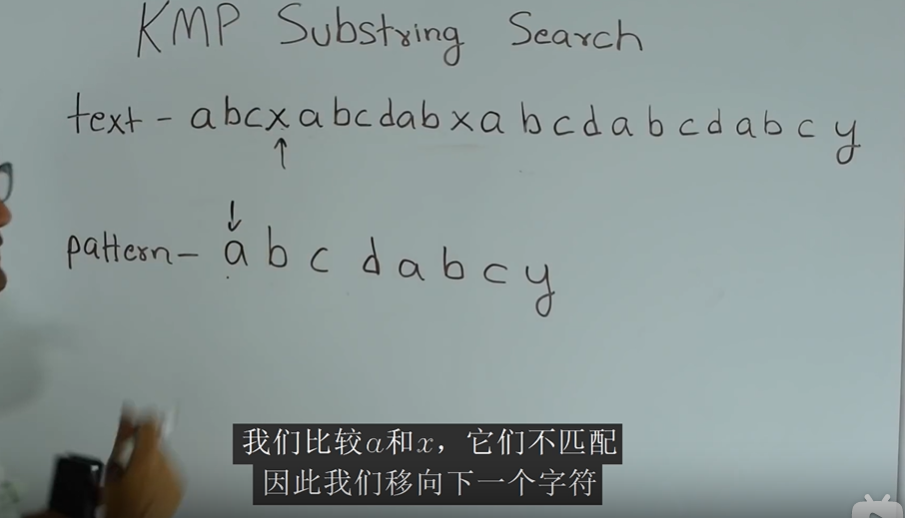 KMP Substring Search
text - abcxabcdabxabcdabcdabcy
pattern - abcdabcy
我们比较a和x，它们不匹配
因此我们移向下一个字符